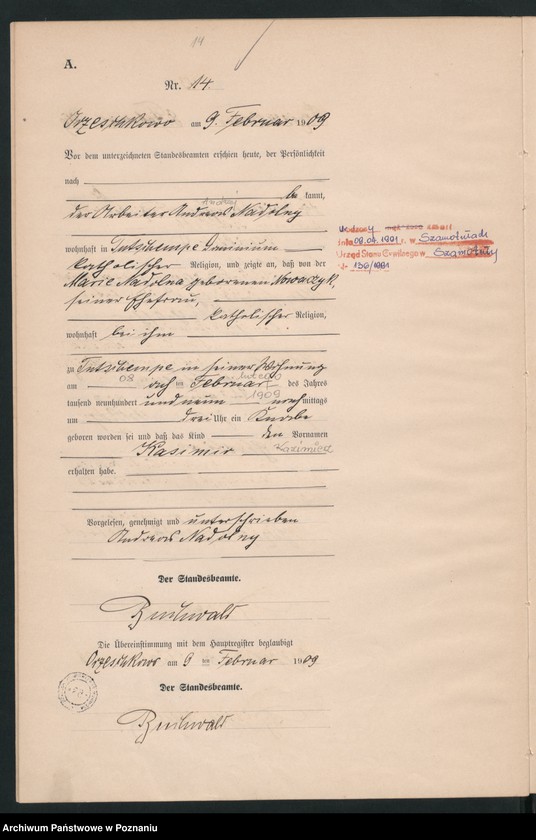 14
A.
Nr. 14.
Orzeschkowo am 9. Februar 1909
Vor dem unterzeichneten Standesbeamten erschien heute, der Persönlichkeit
nach
be kannt,
Andrzej
der Arbeiter Andreas Nadolny
wohnhaft in Tutschempe Dominium
katholischer Religion, und zeigte an, daß von der
Marie Nadolna geborenen Nowaczyk,
seiner Ehefrau,
katholischer Religion,
wohnhaft bei ihm
zu Tutschempe in seiner Wohnung
08 lutego
am acht ten Februar des Jahres
1909
tausend neunhundert und neun nachmittags
um drei Uhr ein Knabe
geboren worden sei und daß das Kind den Vornamen
Kasimir Kazimierz
erhalten habe.
Vorgelesen, genehmigt und unterschrieben
Andreas Nadolny
Der Standesbeamte.
Buchwald
Die Übereinstimmung mit dem Hauptregister beglaubigt
Orzeschkowo am 9 ten Februar 1909
Der Standesbeamte.
Buchwald
zmarł
dnia 08.04.1981 r. w Szamotułach
Urząd Stanu Cywilnego w Szamotuły
136/1981
Archiwum Państwowe w Poznaniu